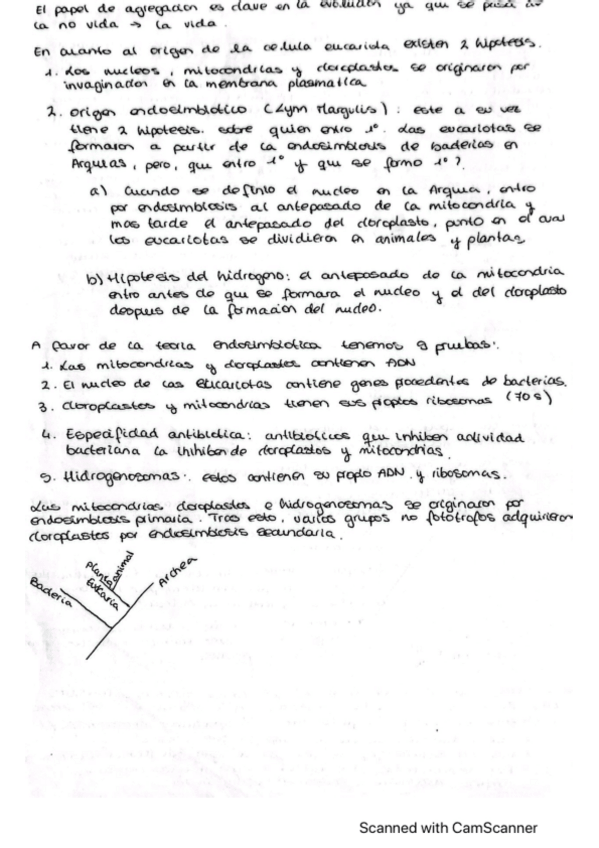 El papel de agregacion es clave en la evolucion ya que se pasa de
la no vida → la vida.
En cuanto al origen de la celula eucariota existen 2 hipotesis.
1. Los nucleos, mitocondrias y cloroplastos se originaron por
invaginacion en la membrana plasmatica
2. Origen endosimbiotico (Lynn Margulis): este a su vez
tiene 2 hipotesis. sobre quien entro 1º. Las eucariotas se
formaron a partir de la endosimbiosis de bacterias en
Arquias, pero, que entro 1º y que se formo 1º?
a) Cuando se definio el nucleo en la Arquia, entro
por endosimbiosis al antepasado de la mitocondria y
mas tarde el antepasado del cloroplasto, punto en el cual
los eucariotas se dividieron en animales y plantas
b) Hipotesis del hidrogeno: el antepasado de la mitocondria
entro antes de que se formara el nucleo y el del cloroplasto
despues de la formacion del nucleo.
A favor de la teoria endosimbiotica tenemos 5 pruebas:
1. Las mitocondrias y cloroplastes contienen ADN
2. El nucleo de las eucariotas contiene genes procedentes de bacterias.
3. Cloroplastos y mitocondrias tienen sus propios ribosomas (70s)
4. Especifidad antibiotica: antibioticos que inhiben actividad
bacteriana la inhiben de cloroplastos y mitocondrias.
5. Hidrogenosomas: estos contienen su propio ADN y ribosomas.
Las mitocondrias cloroplastes e hidrogenosomas se originaron por
endosimbiosis primaria. Tras esto, varios grupos no fototrofos adquirieron
cloroplastos por endosimbiosis secundaria.
planta
animal
Eukaria
Archea
Bacteria
Scanned with CamScanner